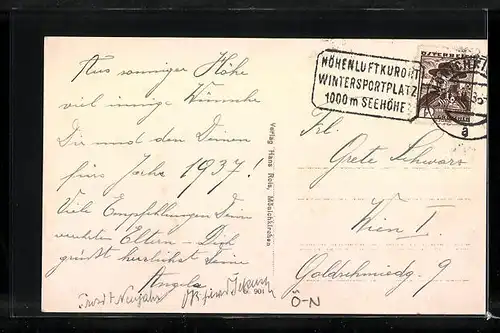 Aus sonniger Höhe
viel innige Wünsche
Dir und den Deinen
fürs Jahr 1937!
Viele Empfehlungen Deinen
verehrten Eltern - Dich
grüßt herzlichst Deine
Angela
Prosit Neujahr
Verlag Hans Reis, Mönichkirchen
901
HÖHENLUFTKURORT
WINTERSPORTPLATZ
1000 m SEEHÖHE
ÖSTERREICH
a
Frl.
Grete Schwarz
Wien I.
Goldschmiedg. 9
Ö-N